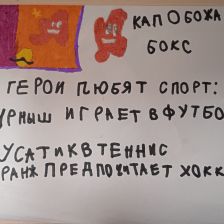 КАПОБОЖА
БОКС
ГЕРОИ ЛЮБЯТ СПОРТ:
УРНЫШ ИГРАЕТ В ФУТБО
УСАТИК В ТЕННИС
РАНЖ ПРЕДПОЧИТАЕТ ХОКК